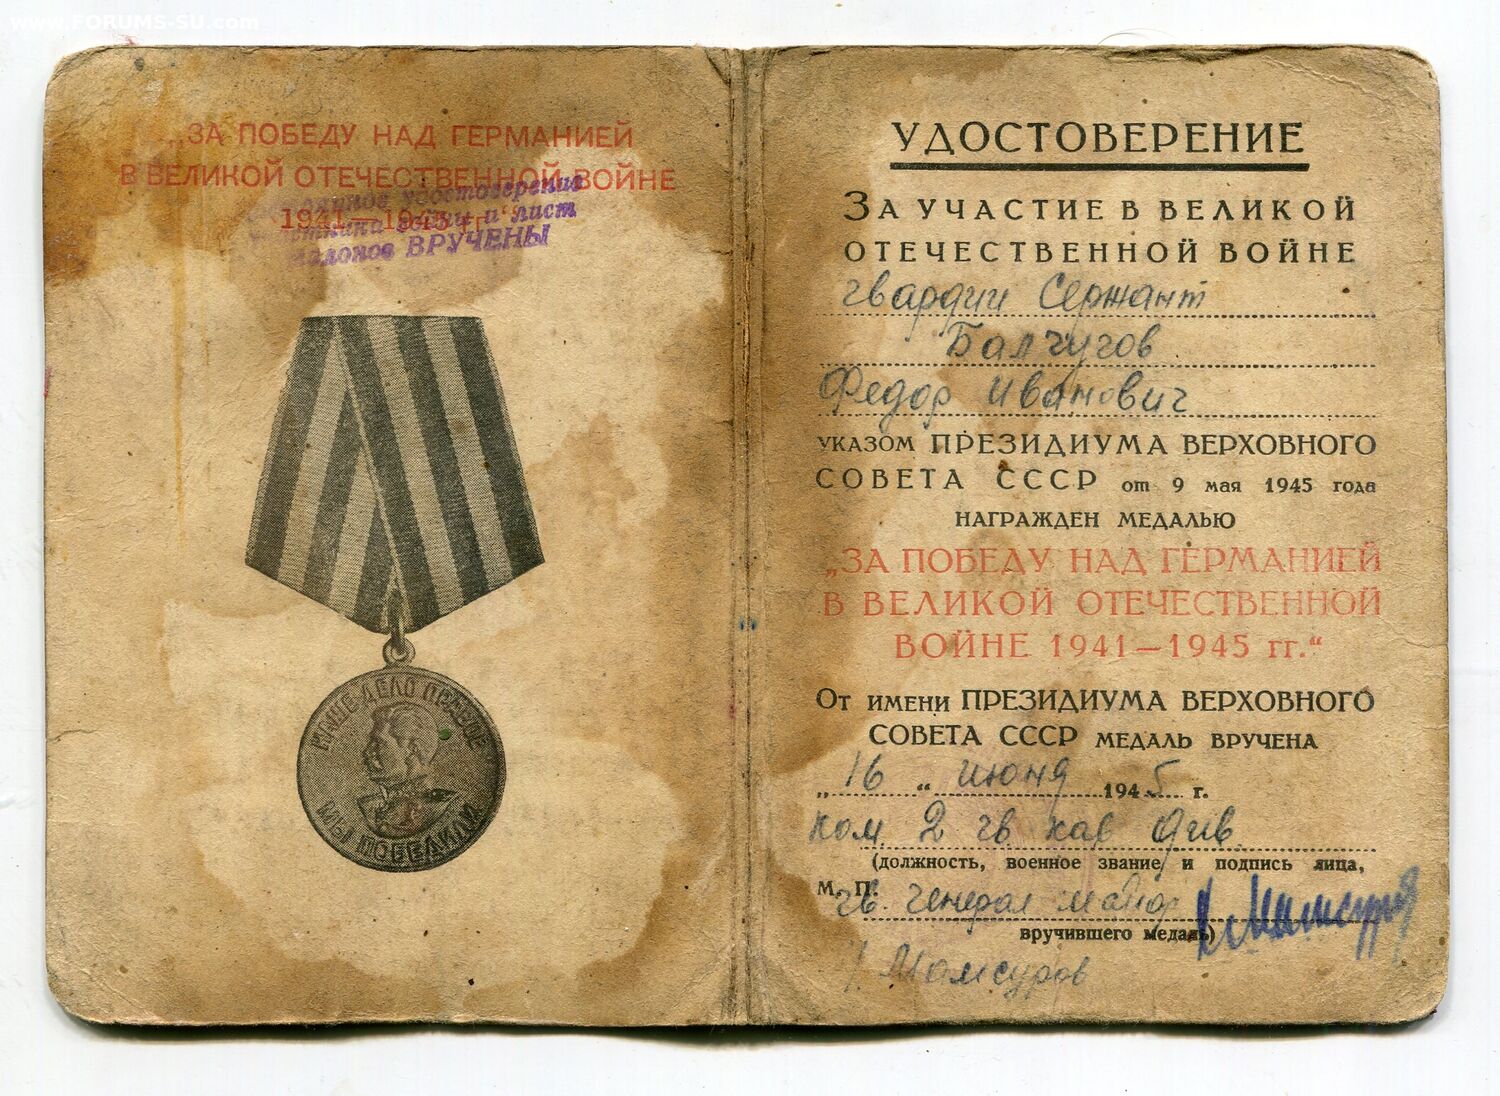 www.FORUMS-SU.com
„ЗА ПОБЕДУ НАД ГЕРМАНИЕЙ
В ВЕЛИКОЙ ОТЕЧЕСТВЕННОЙ ВОЙНЕ
1941—1945 гг."
удостоверение
и лист
талонов ВРУЧЕНЫ
НАШЕ ДЕЛО ПРАВОЕ
МЫ ПОБЕДИЛИ
УДОСТОВЕРЕНИЕ
ЗА УЧАСТИЕ В ВЕЛИКОЙ
ОТЕЧЕСТВЕННОЙ ВОЙНЕ
гвардии Сержант
Балчугов
Федор Иванович
УКАЗОМ ПРЕЗИДИУМА ВЕРХОВНОГО
СОВЕТА СССР от 9 мая 1945 года
НАГРАЖДЕН МЕДАЛЬЮ
„ЗА ПОБЕДУ НАД ГЕРМАНИЕЙ
В ВЕЛИКОЙ ОТЕЧЕСТВЕННОЙ
ВОЙНЕ 1941—1945 гг."
ОТ ИМЕНИ ПРЕЗИДИУМА ВЕРХОВНОГО
СОВЕТА СССР МЕДАЛЬ ВРУЧЕНА
„16 " июня 1945 г.
ком 2 гв кав див.
(должность, военное звание и подпись лица,
М. П. гв. генерал майор
вручившего медаль)
Мамсуров